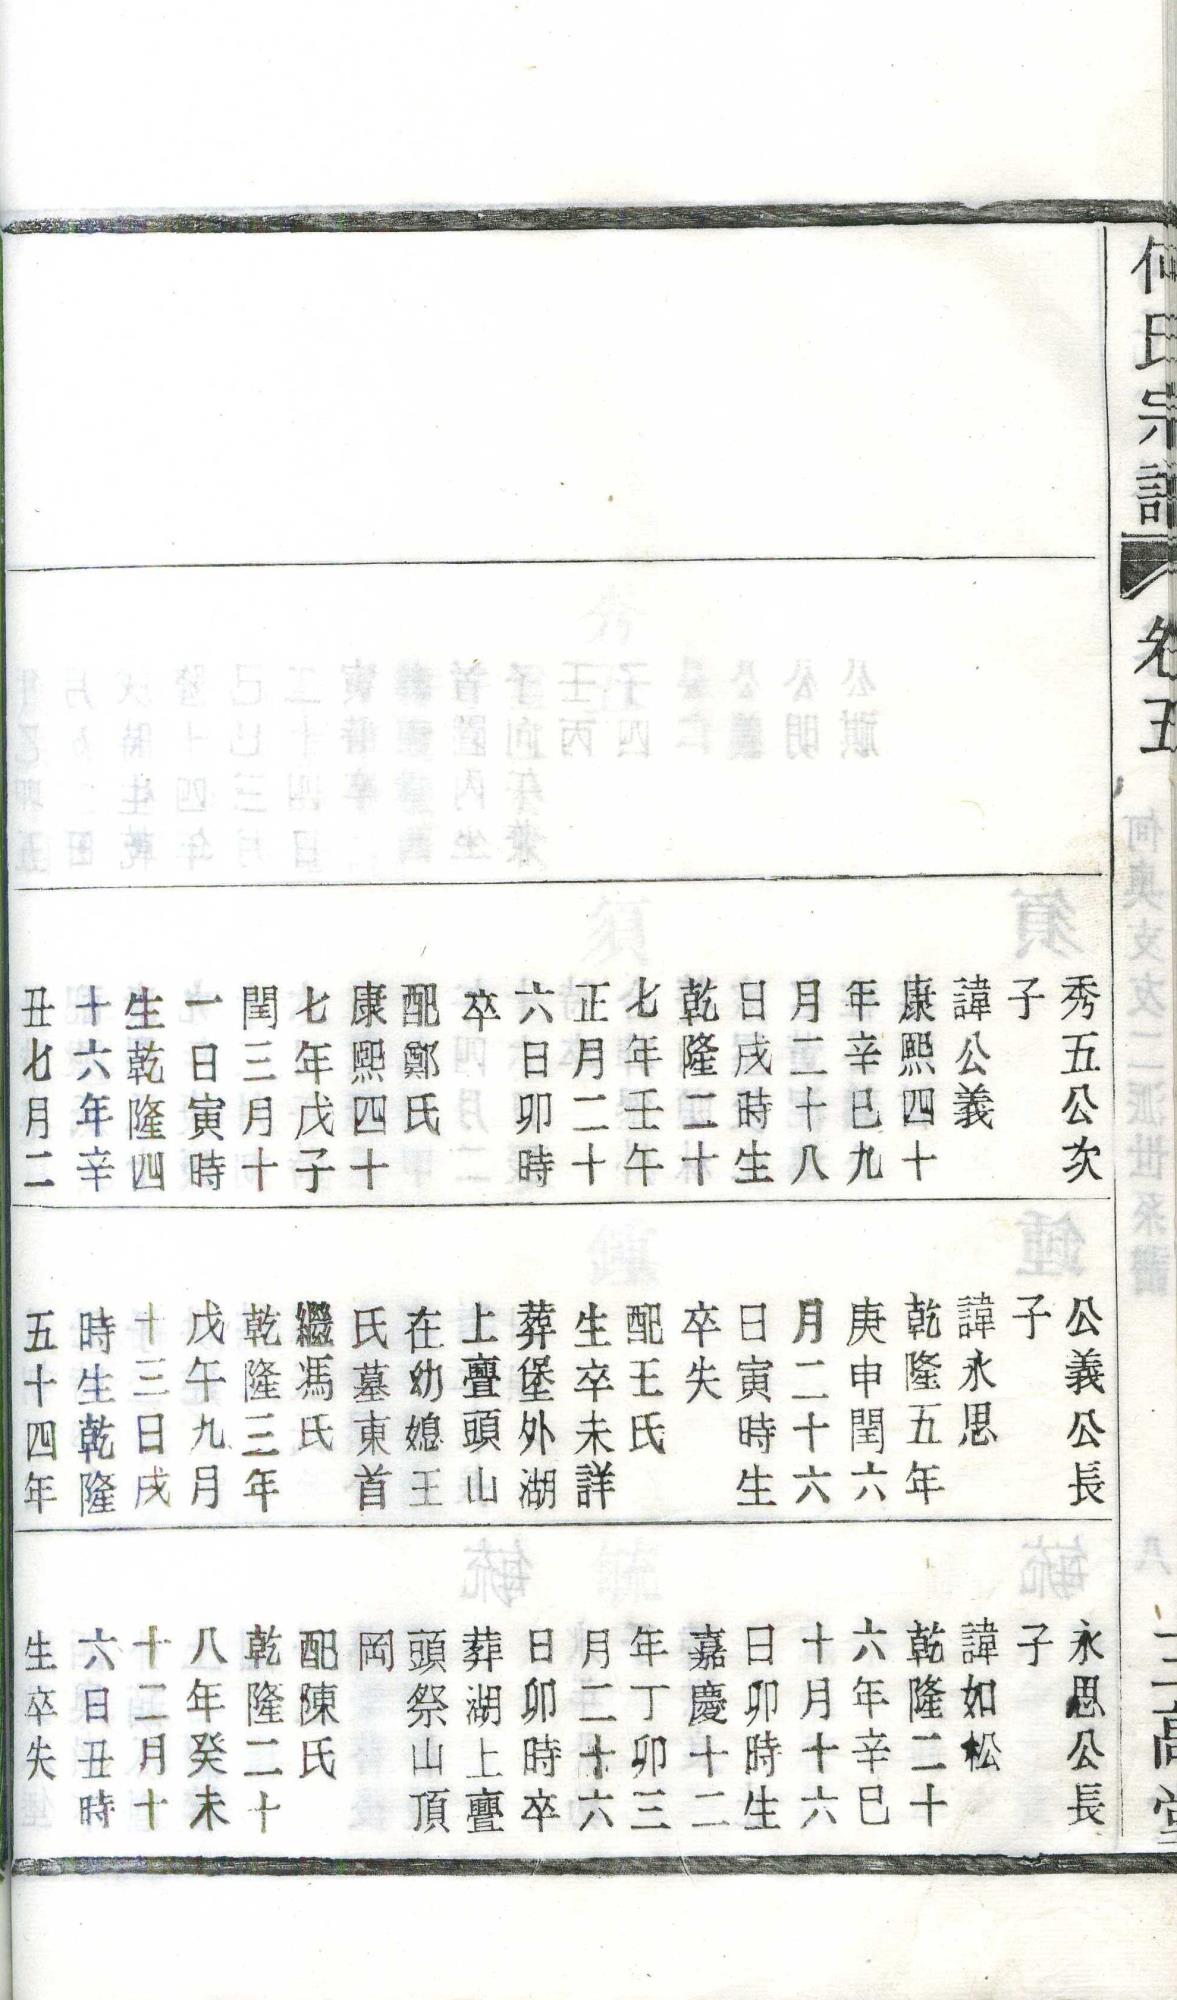 何氏宗譜
卷五
三高堂
秀五公次
子
諱公義
康熙四十
年辛巳九
月二十八
日戌時生
乾隆二十
七年壬午
正月二十
六日卯時
卒
配鄭氏
康熙四十
七年戊子
閏三月十
一日寅時
生乾隆四
十六年辛
丑七月二
公義公長
子
諱永思
乾隆五年
庚申閏六
月二十六
日寅時生
卒失
配王氏
生卒未詳
葬堡外湖
上疊頭山
在幼媳王
氏墓東首
繼馮氏
乾隆三年
戊午九月
十三日戌
時生乾隆
五十四年
永思公長
子
諱如松
乾隆二十
六年辛巳
十月十六
日卯時生
嘉慶十二
年丁卯三
月二十六
日卯時卒
葬湖上疊
頭祭山頂
岡
配陳氏
乾隆二十
八年癸未
十二月十
六日丑時
生卒失